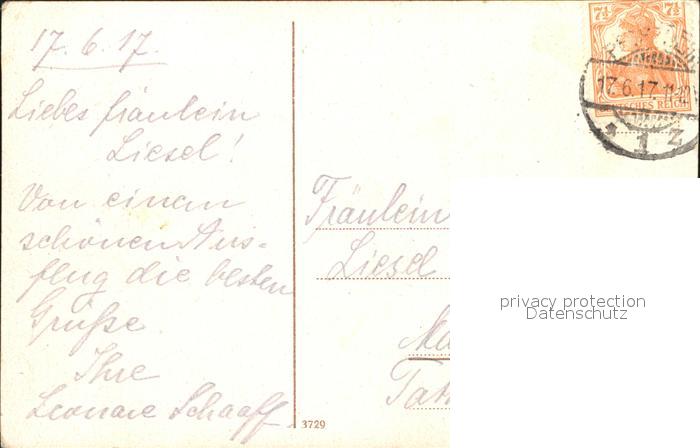 17.6.17.
Liebes fräulein
Liesel!
Von einem
schönen Aus-
flug die besten
Grüße.
Ihre
Leonore Schaaff
3729
Fräulein
Liesel
7½ 7½
DEUTSCHES REICH
17.6.17. 11-12
* 1 Z
privacy protection
Datenschutz